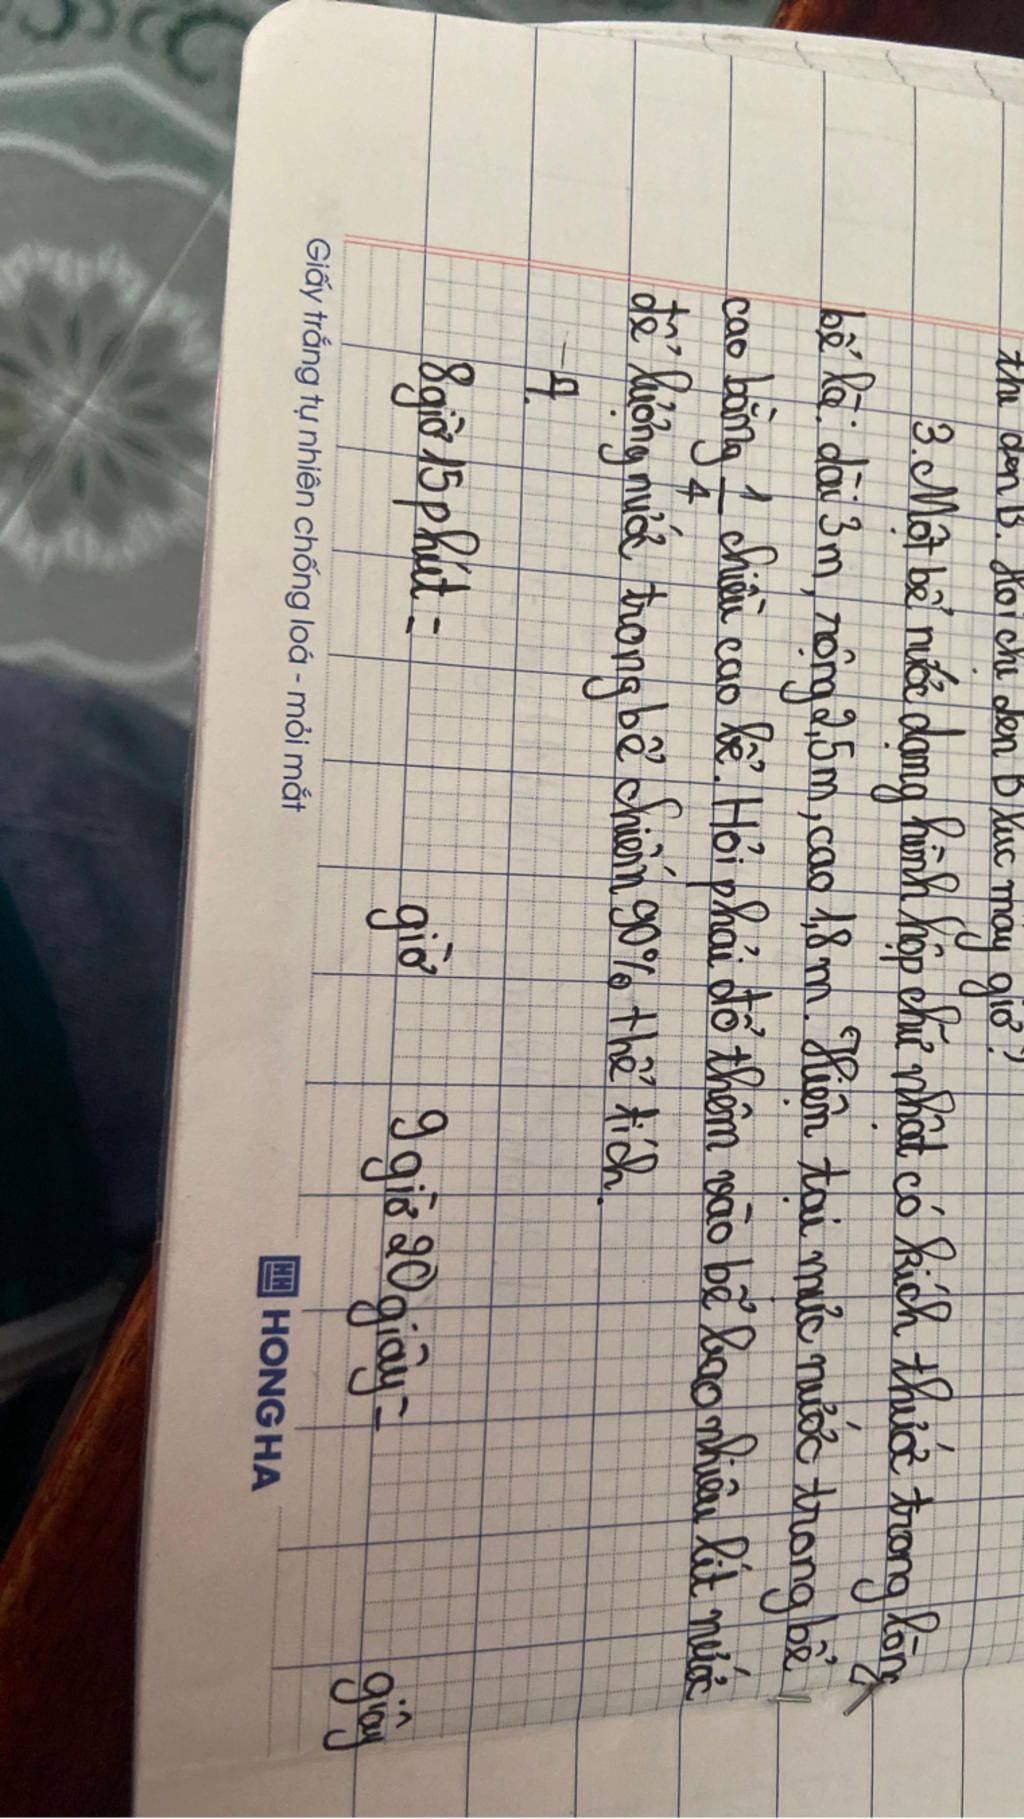 thì đến B. Hỏi chị đến B lúc mấy giờ?
3. Một bể nước dạng hình hộp chữ nhật có kích thước trong lòng
bể là: dài 3m, rộng 2,5m, cao 1,8m. Hiện tại mức nước trong bể
cao bằng 1/4 chiều cao bể. Hỏi phải đổ thêm vào bể bao nhiêu lít nước
để lượng nước trong bể chiếm 90% thể tích.
8 giờ 15 phút = giờ 9 giờ 20 giây = giây
Giấy trắng tự nhiên chống loá - mỏi mắt
HH HONG HA